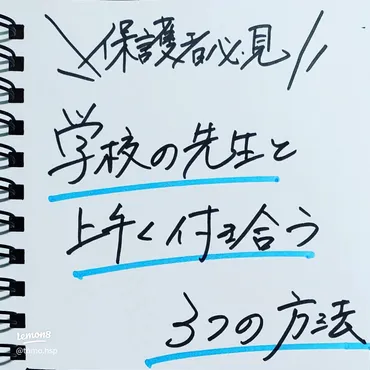 ＼保護者必見／/
学校の先生と
上手く付き合う
3つの方法
lemon8
@tomo.nsp